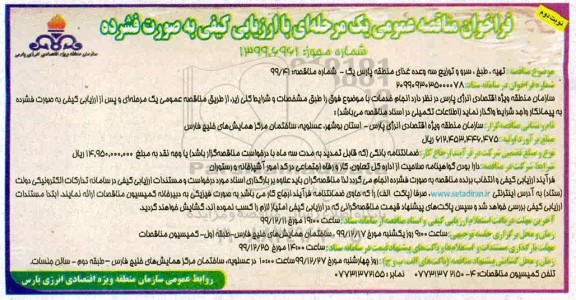 نوبت دوم
فراخوان مناقصه عمومی یک مرحله‌ای با ارزیابی کیفی به صورت فشرده
شماره مجوز: ۱۳۹۹.۶۹۶۱
سازمان منطقه ویژه اقتصادی انرژی پارس
موضوع مناقصه: تهیه ، طبخ ، سرو و توزیع سه وعده غذای منطقه پارس یک - شماره مناقصه: ۹۹/۴۱
شماره فراخوان در سامانه ستاد: ۲۰۹۹۰۹۳۰۳۵۰۰۰۰۷۸
سازمان منطقه ویژه اقتصادی انرژی پارس در نظر دارد انجام خدمات با موضوع فوق را طبق مشخصات و شرایط کلی زیر، از طریق مناقصه عمومی یک مرحله‌ای و پس از ارزیابی کیفی به صورت فشرده
به پیمانکار واجد شرایط واگذار نماید (اطلاعات تکمیلی در اسناد مناقصه می‌باشد):
نام و نشانی مناقصه‌گزار: سازمان منطقه ویژه اقتصادی انرژی پارس - استان بوشهر، عسلویه، ساختمان مرکز همایش‌های خلیج فارس
مبلغ برآورد اولیه: ۶۱۲,۴۵۳,۴۴۶,۴۷۵ ریال
نوع و مبلغ تضمین شرکت در فرآیند ارجاع کار: ضمانتنامه بانکی (که قابل تمدید به مدت سه ماه با درخواست مناقصه‌گزار باشد) یا وجه نقد به مبلغ ۱۴,۹۵۰,۰۰۰,۰۰۰ ریال
شرایط شرکت در مناقصه: دارا بودن گواهینامه صلاحیت از اداره کل تعاون کار و رفاه اجتماعی در کد امور آشپزخانه و رستوران
فرآیند ارزیابی کیفی و انتخاب برنده مناقصه به صورت فشرده انجام می‌گردد لذا مناقصه‌گران باید علاوه بر بارگذاری اسناد مورد درخواست و مستندات ارزیابی کیفی در سامانه تدارکات الکترونیکی دولت
(ستاد) به آدرس اینترنتی www.setadiran.ir، صرفا (پاکت الف) را که حاوی ضمانتنامه فرآیند ارجاع کار می باشد به صورت فیزیکی به دبیرخانه کمیسیون مناقصات ارائه نمایند. ابتدا مستندات
ارزیابی کیفی بررسی خواهد شد و سپس پاکت‌های پیشنهاد قیمت مناقصه‌گرانی که در ارزیابی کیفی امتیاز لازم را کسب نموده اند، گشایش خواهند گردید.
آخرین مهلت دریافت استعلام ارزیابی کیفی و اسناد مناقصه از سامانه: ساعت ۱۹:۰۰ مورخ ۹۹/۱۲/۱۱
زمان و محل برگزاری جلسه توجیهی: ساعت ۹:۰۰ روز یکشنبه مورخ ۹۹/۱۲/۱۷، ساختمان مرکز همایش‌های خلیج فارس-طبقه اول-کمیسیون مناقصات
مهلت بارگذاری مستندات و استعلام ها و پاکت‌های پیشنهاد قیمت در سامانه ستاد: ساعت ۱۴:۰۰ مورخ ۹۹/۱۲/۲۵
زمان و محل گشایش پاکت‌های مناقصه (پاکت‌های الف، ب و ج): روز چهارشنبه مورخ ۹۹/۱۲/۲۷ ساعت ۱۰:۰۰ در عسلویه، ساختمان مرکز همایش‌های خلیج فارس - طبقه دوم - سالن جلسات.
تلفن کمیسیون مناقصات: ۴-۰۷۷۳۱۳۷۲۱۵۰ نمابر: ۰۷۷۳۱۳۷۲۱۵۵
روابط عمومی سازمان منطقه ویژه اقتصادی انرژی پارس